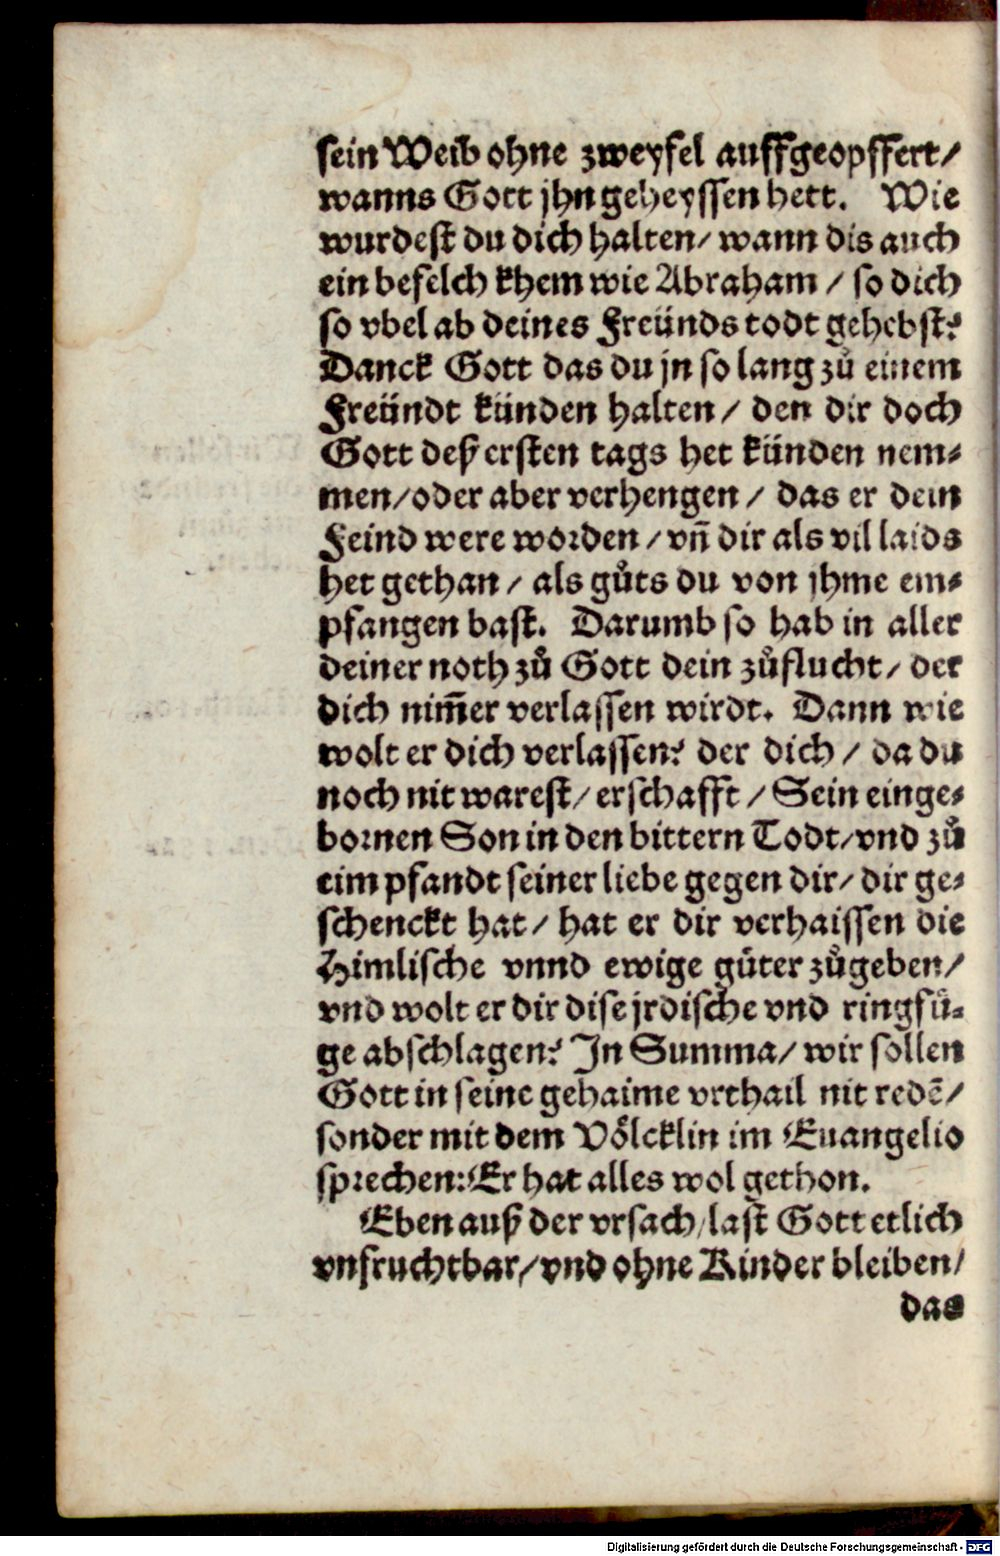 sein Weib ohne zweyfel auffgeopffert/
wanns Gott jhn geheyssen hett. Wie
wurdest du dich halten/ wann dis auch
ein befelch khem wie Abraham / so dich
so vbel ab deines Freünds todt gehebst?
Danck Gott das du jn so lang zů einem
Freündt künden halten/ den dir doch
Gott deß ersten tags het künden nem-
men/oder aber verhengen / das er dein
Feind were worden/ vn̄ dir als vil laids
het gethan / als gůts du von jhme em-
pfangen hast. Darumb so hab in aller
deiner noth zů Gott dein zůflucht/ der
dich nim̄er verlassen wirdt. Dann wie
wolt er dich verlassen? der dich / da du
noch nit warest/ erschafft / Sein einge-
bornen Son in den bittern Todt/vnd zů
eim pfandt seiner liebe gegen dir/ dir ge-
schenckt hat/ hat er dir verhaissen die
Himlische vnnd ewige güter zůgeben/
vnd wolt er dir dise jrdische vnd ringfü-
ge abschlagen? In Summa/ wir sollen
Gott in seine gehaime vrthail nit redē/
sonder mit dem Völcklin im Euangelio
sprechen: Er hat alles wol gethon.
Eben auß der vrsach/ last Gott etlich
vnfruchtbar/ vnd ohne Kinder bleiben/
das
Digitalisierung gefördert durch die Deutsche Forschungsgemeinschaft - DFG